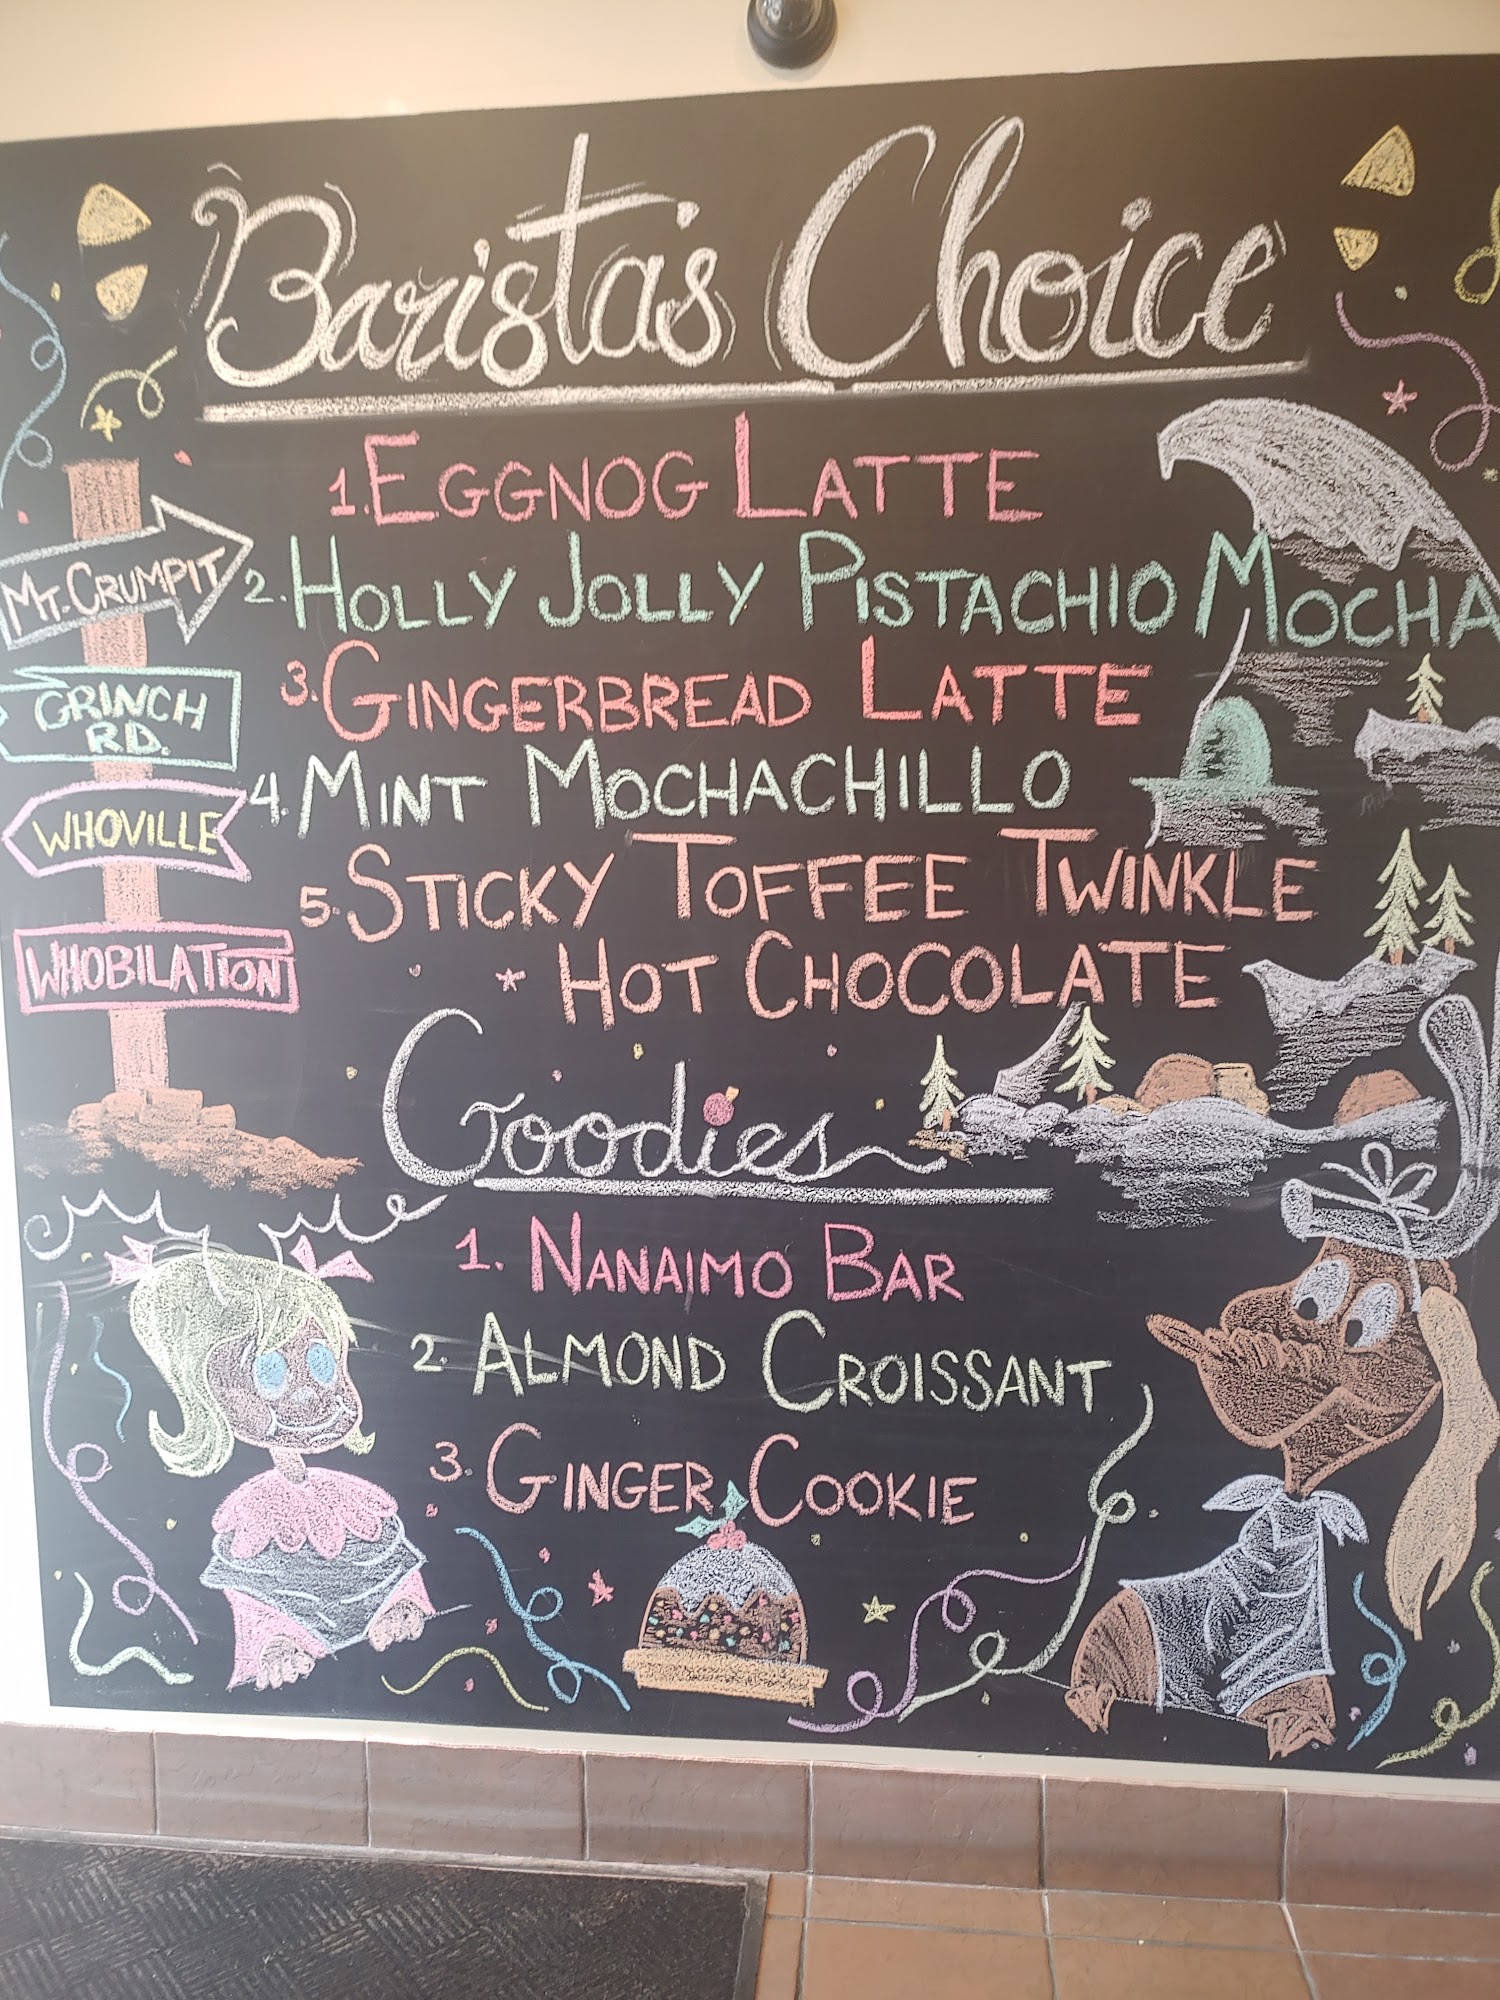 Barista's Choice
1. EGGNOG LATTE
2. HOLLY JOLLY PISTACHIO MOCHA
3. GINGERBREAD LATTE
4. MINT MOCHACHILLO
5. STICKY TOFFEE TWINKLE
HOT CHOCOLATE
MT. CRUMPIT
GRINCH
RD.
WHOVILLE
WHOBILATION
Goodies
1. NANAIMO BAR
2. ALMOND CROISSANT
3. GINGER COOKIE